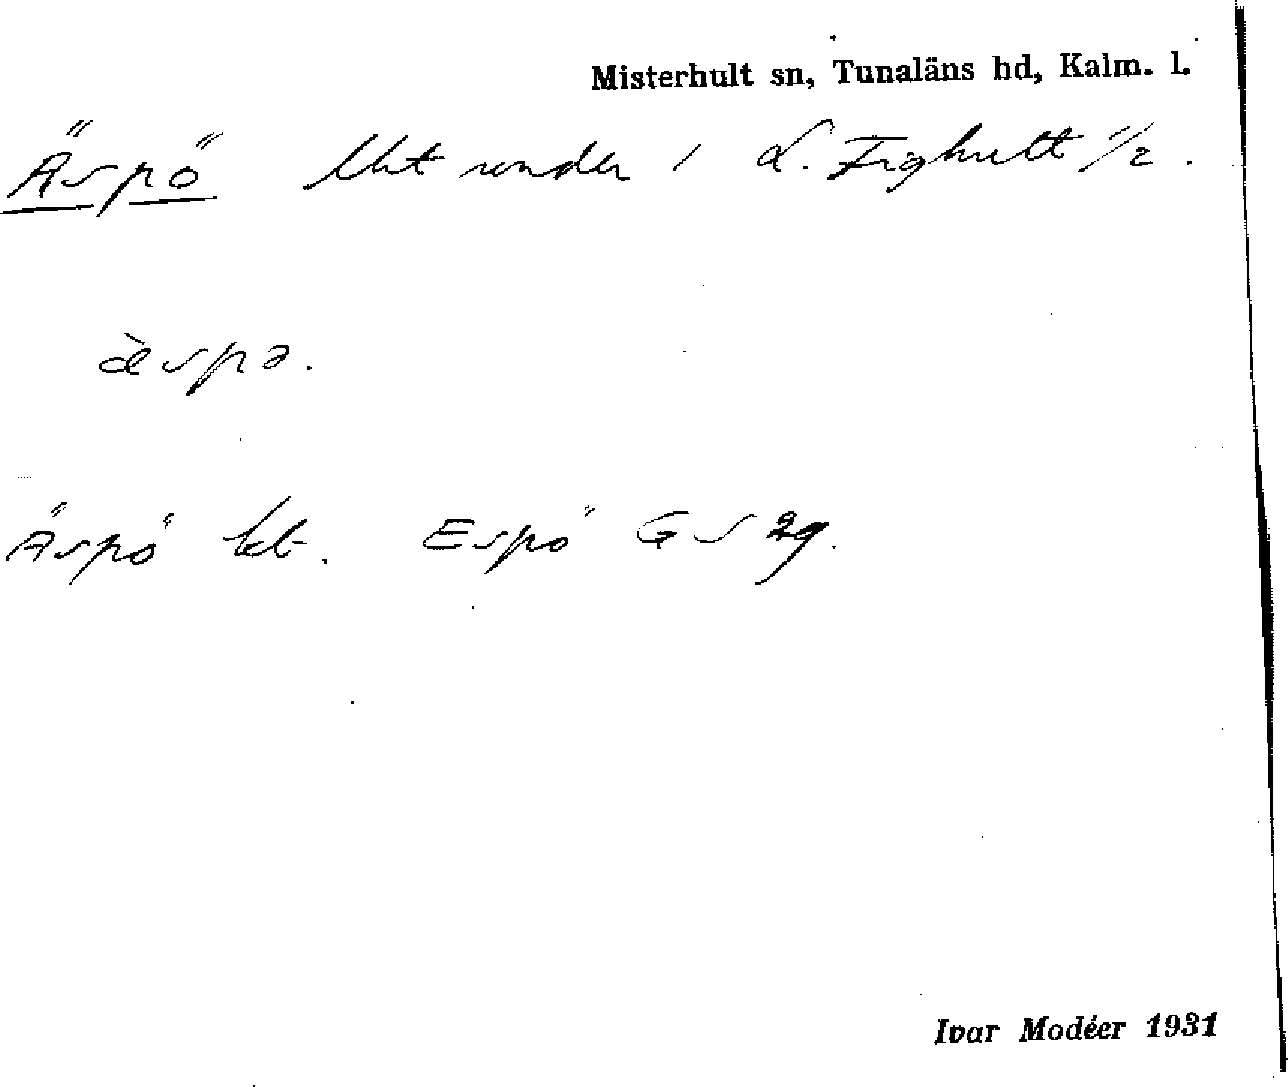 Misterhult sn, Tunaläns hd, Kalm. l.
Äspö Utjorden i L. Fighult 1/2.
àspə.
Äspö kb. Espö GS 29.
Ivar Modéer 1931